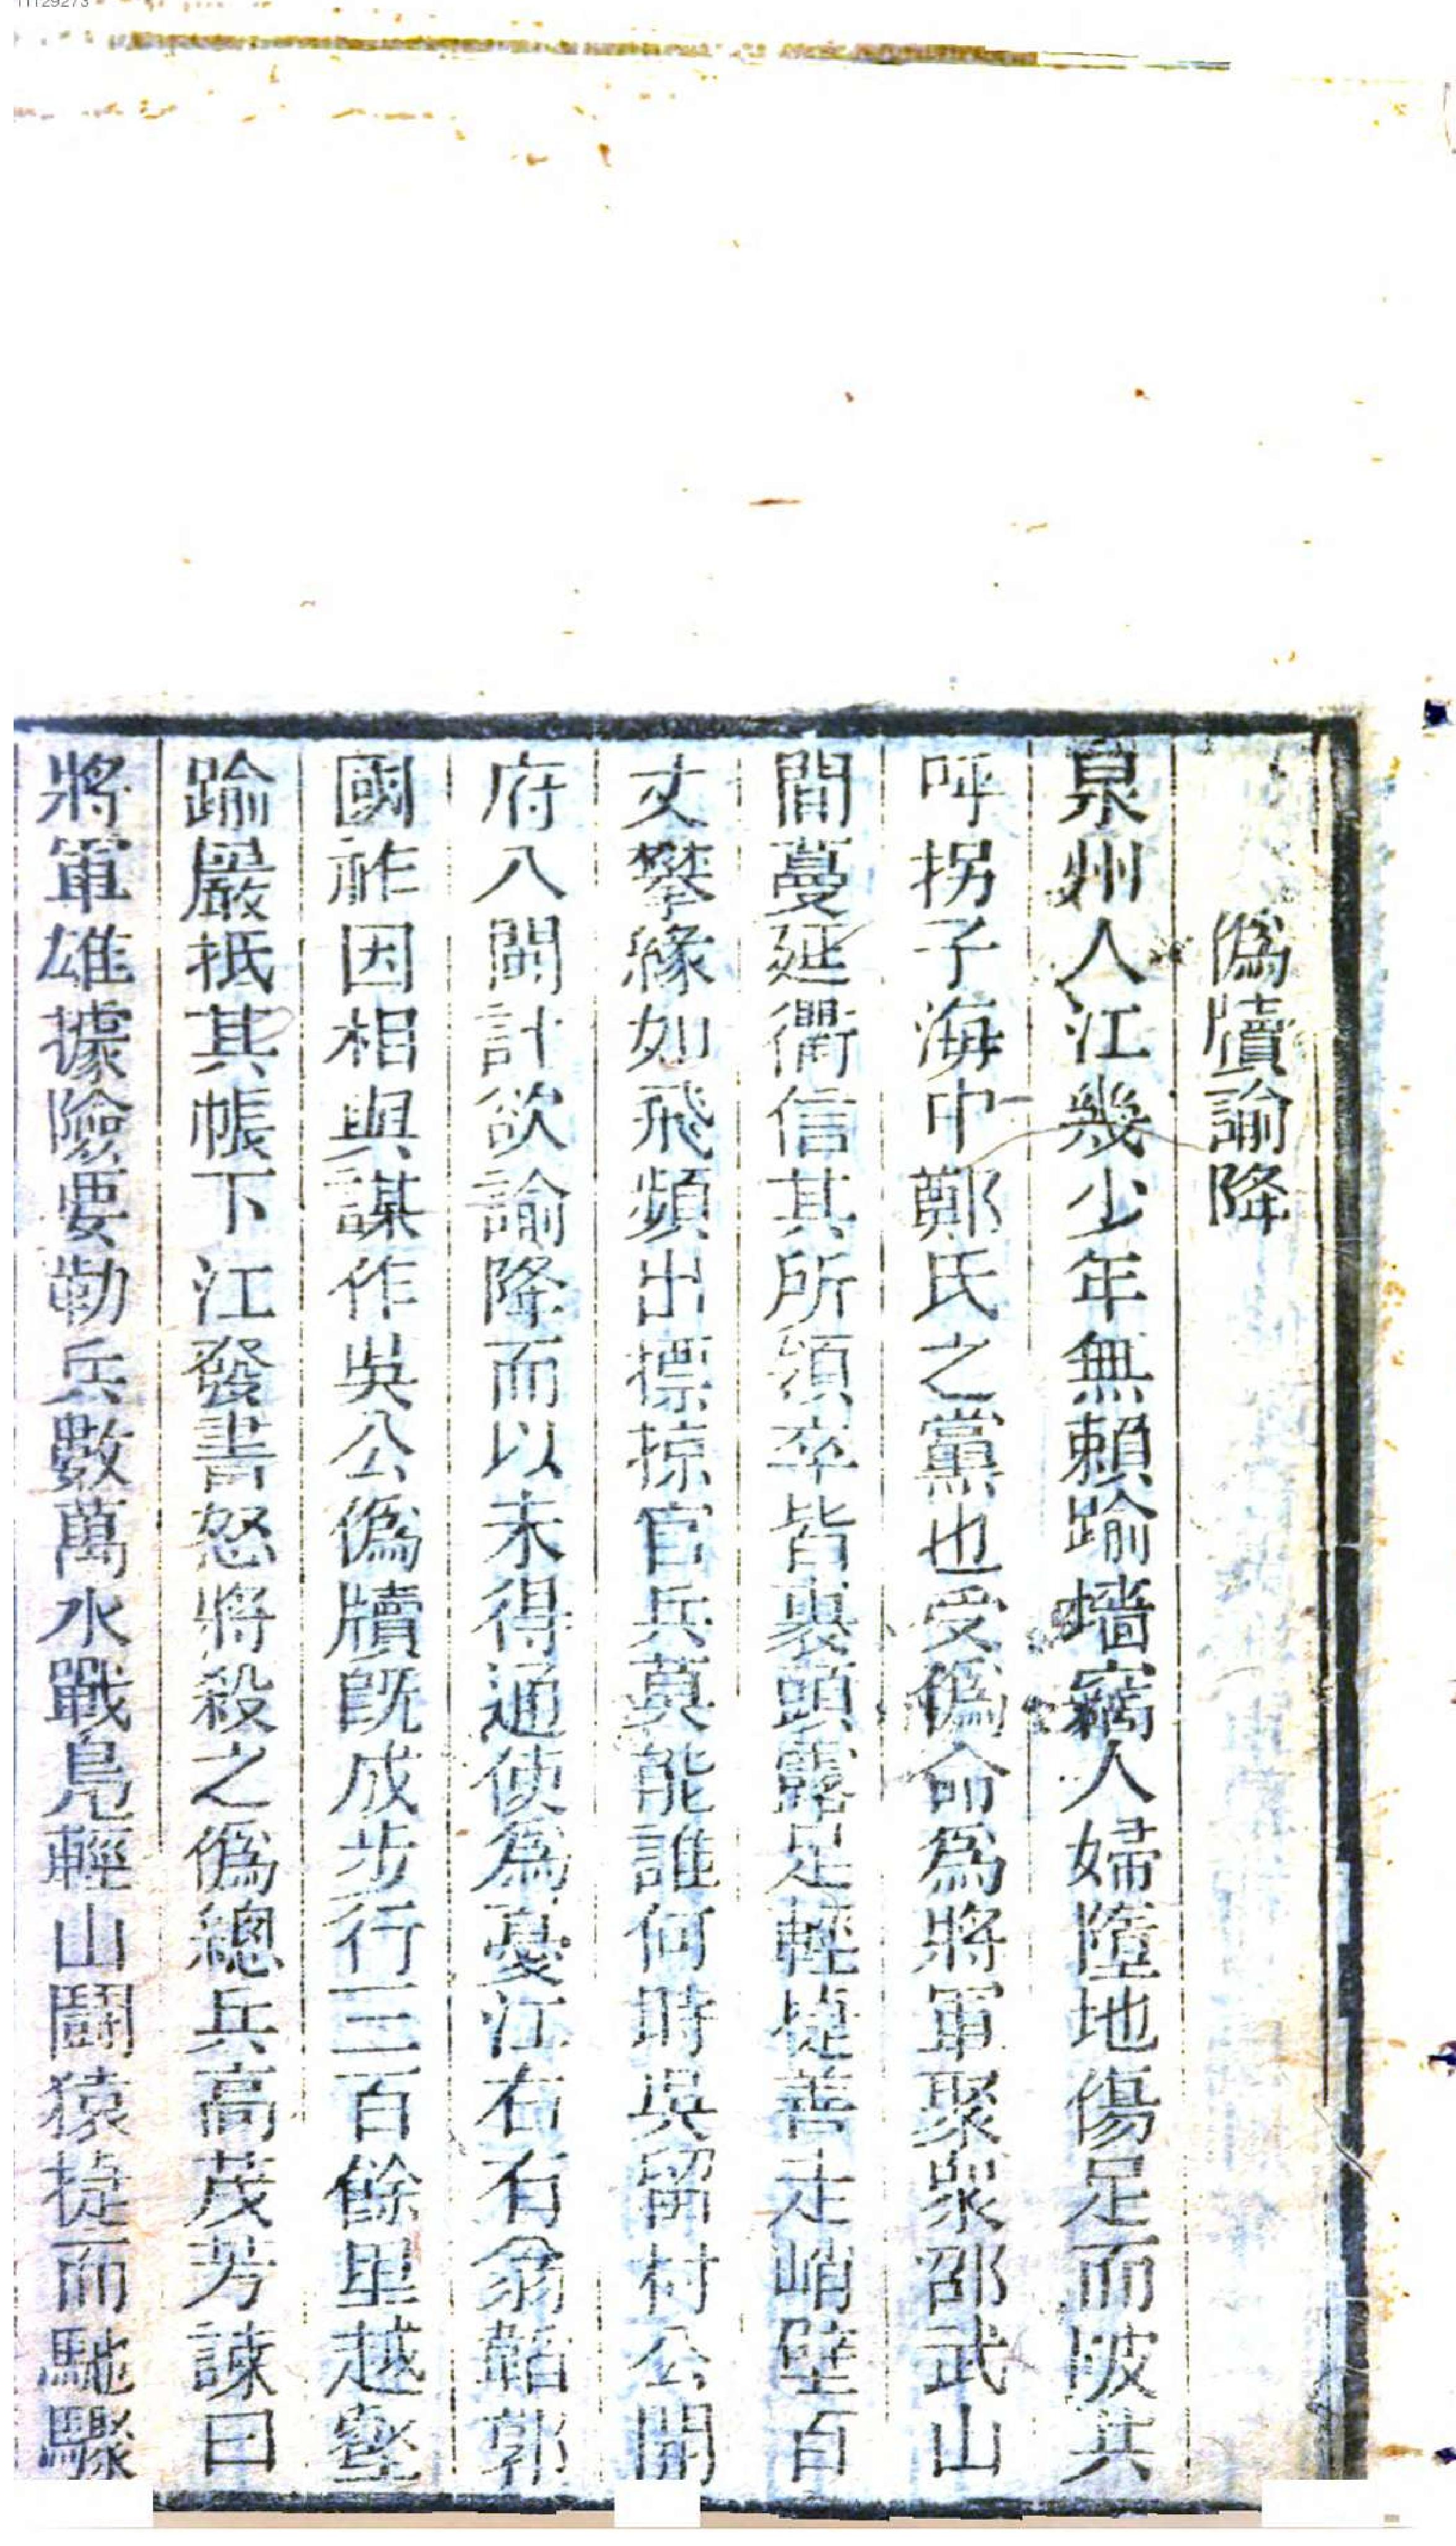 11129273
偽牘諭降
泉州人江幾少年無賴踰墻竊人婦墮地傷足而跛其
呼拐子海中鄭氏之黨也受偽命爲將軍聚衆邵武山
間蔓延衢信其所領卒皆裹頭露足輕捷善走峭壁百
丈攀緣如飛頻出摽掠官兵莫能誰何時吳留村公開
府八閩計欲諭降而以未得通使爲憂江右有翁韜郭
國祚因相與謀作吳公偽牘旣成步行三百餘里越壑
踰巖抵其帳下江發書怒將殺之偽總兵高茂芳諫曰
將軍雄據險要勒兵數萬水戰鳧輕山鬪猿捷而馳驟